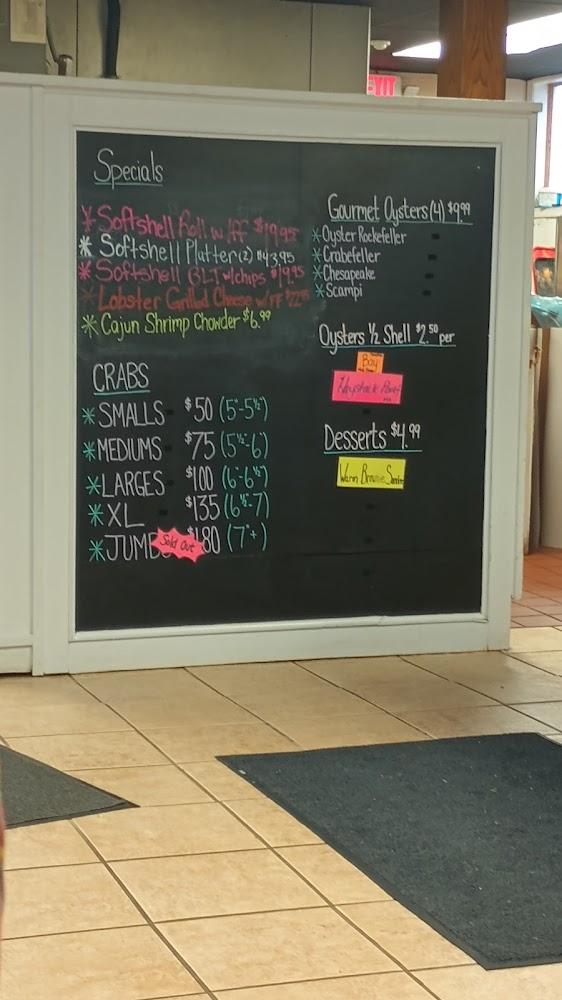 EXIT
Specials
* Softshell Roll w/ff $19.95
* Softshell Platter (2) $43.95
* Softshell BLT w/chips $19.95
* Lobster Grilled Cheese w/FF
* Cajun Shrimp Chowder $6.99
CRABS
* SMALLS - $50 (5"-5½")
* MEDIUMS $75 (5½"-6)
* LARGES $100 (6-6½")
* XL - $135 (6½"-7)
* JUMB Sold Out $180 (7"+)
Gourmet Oysters (4) $9.99
* Oyster Rockefeller
* Crabefeller
* Chesapeake
* Scampi
Oysters ½ Shell $2.50 per
Bay
Haystack Point
Desserts $4.99
Warm Brownie